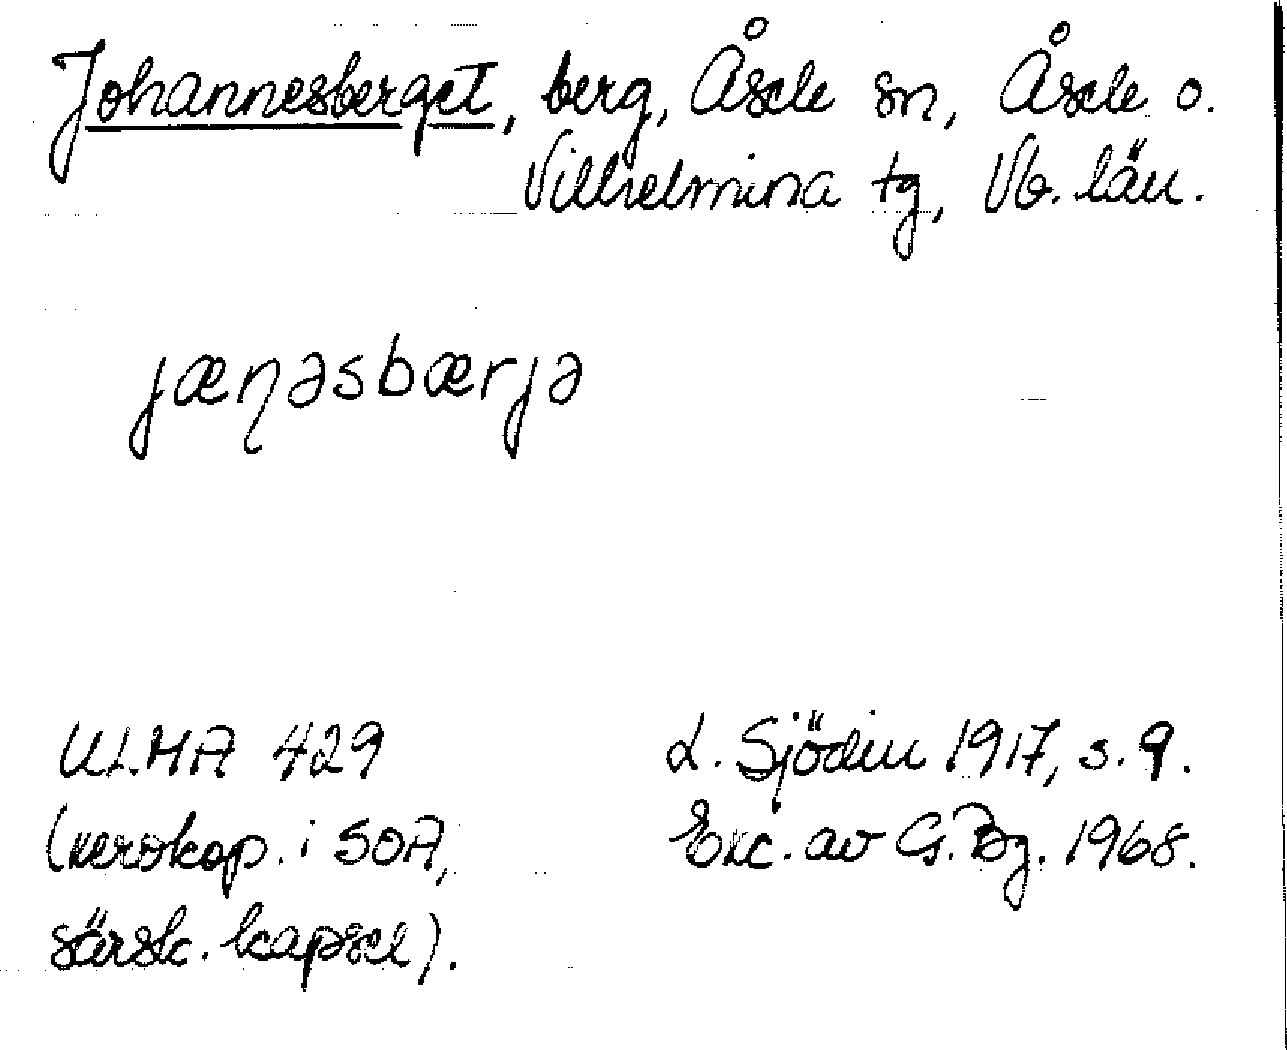 Johannesberget, berg, Åsele sn, Åsele o.
Vilhelmina tg, Vb. län.
jæŋəsbærjə
ULMA 429
L. Sjödin 1917, s. 9.
(xeroxkop. i SOA,
Exc. av G. Bg. 1968.
särsk. kapsel).